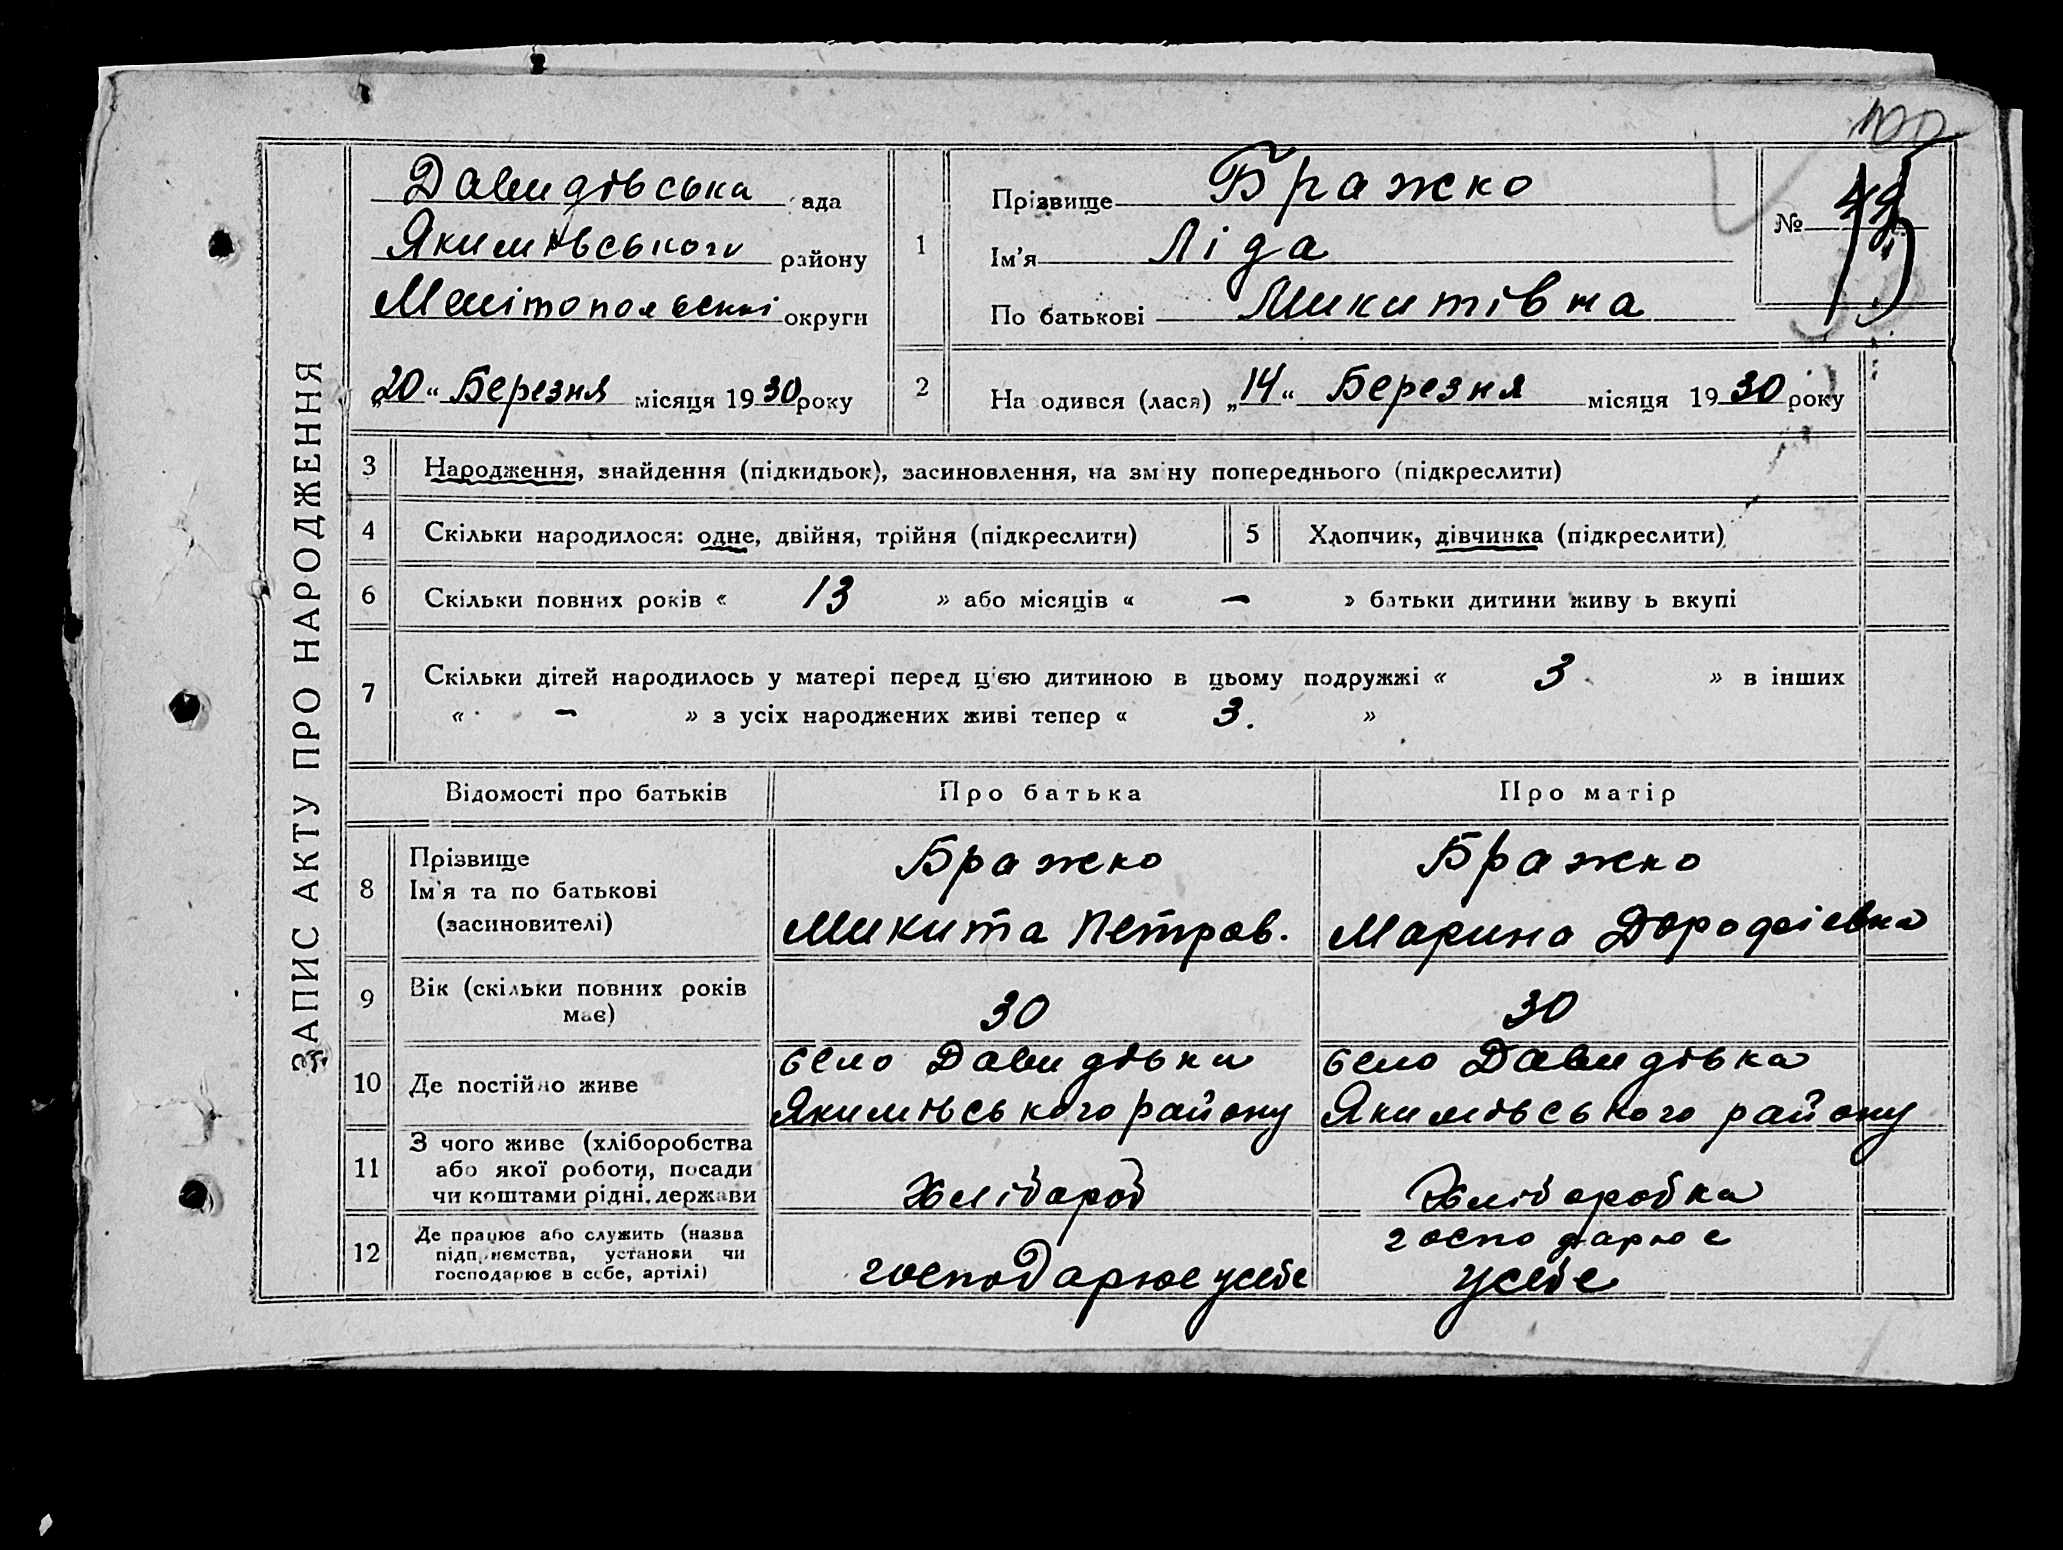 100
ЗАПИС АКТУ ПРО НАРОДЖЕННЯ
Давидівська ада
Якимівського району
Мелітопольської округи
„20“ Березня місяця 1930 року
1
Прізвище Бражко
Ім'я Ліда
По батькові Микитівна
№
2
На одився (лася) „14“ Березня місяця 1930 року
3 Народження, знайдення (підкидьок), засиновлення, на зміну попереднього (підкреслити)
4 Скільки народилося: одне, двійня, трійня (підкреслити) 5 Хлопчик, дівчинка (підкреслити)
6 Скільки повних років « 13 » або місяців « — » батьки дитини живу ь вкупі
7 Скільки дітей народилось у матері перед цією дитиною в цьому подружжі « 3 » в інших
« — » з усіх народжених живі тепер « 3. »
Відомості про батьків Про батька Про матір
8 Прізвище
Ім'я та по батькові
(засиновителі)
Бражко
Микита Петров.
Бражко
Марина Дорофіевна
9 Вік (скільки повних років
має)
30
30
10 Де постійно живе
село Давидівка
Якимівського району
село Давидівка
Якимівського району
11 З чого живе (хліборобства
або якої роботи, посади
чи коштами рідні, держави
Хлібороб
Хліборобка
12 Де працює або служить (назва
підприємства, установи чи
господарює в себе, артілі)
господарює у себе
господарює
у себе